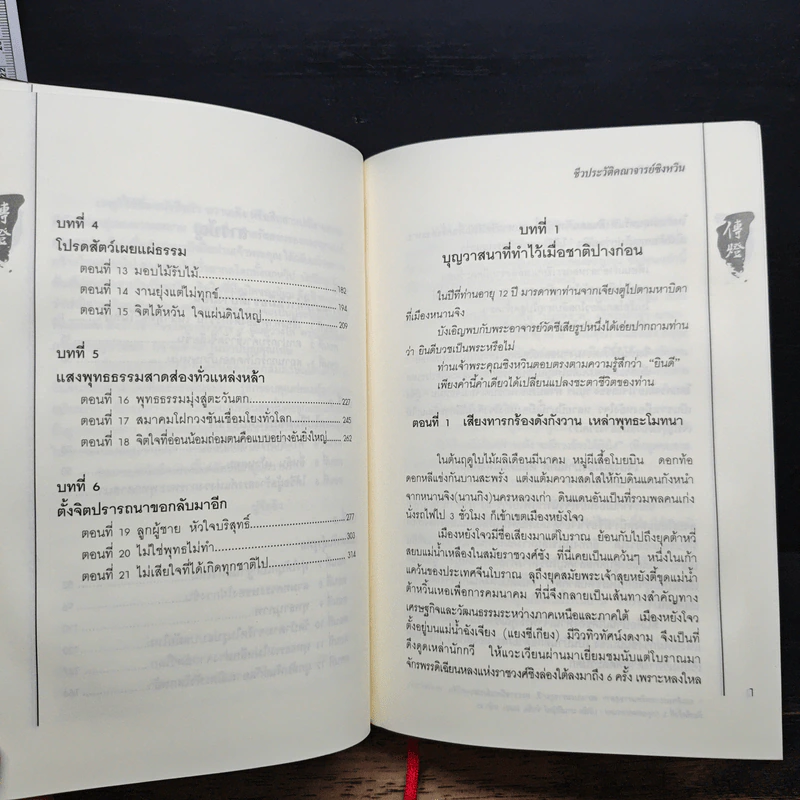 傳燈
บทที่ 4
โปรดสัตว์เผยแผ่ธรรม
ตอนที่ 13 มอบไม้รับไม้ 182
ตอนที่ 14 งานยุ่งแต่ไม่ทุกข์ 194
ตอนที่ 15 จิตไต้หวัน ใจแผ่นดินใหญ่ 209
บทที่ 5
แสงพุทธธรรมสาดส่องทั่วแหล่งหล้า
ตอนที่ 16 พุทธธรรมมุ่งสู่ตะวันตก 227
ตอนที่ 17 สมาคมโฝกวงซันเชื่อมโยงทั่วโลก 245
ตอนที่ 18 จิตใจที่อ่อนน้อมถ่อมตนคือแบบอย่างอันยิ่งใหญ่ 262
บทที่ 6
ตั้งจิตปรารถนาขอกลับมาอีก
ตอนที่ 19 ลูกผู้ชาย หัวใจบริสุทธิ์ 277
ตอนที่ 20 ไม่ใช่พุทธไม่ทำ 300
ตอนที่ 21 ไม่เสียใจที่ได้เกิดทุกชาติไป 314
ชีวประวัติคณาจารย์ซิงหวิน
傳燈
บทที่ 1
บุญวาสนาที่ทำไว้เมื่อชาติปางก่อน
ในปีที่ท่านอายุ 12 ปี มารดาพาท่านจากเจียงตูไปตามหาบิดา
ที่เมืองหนานจิง
บังเอิญพบกับพระอาจารย์วัดซีเสียรูปหนึ่งได้เอ่ยปากถามท่าน
ว่า ยินดีบวชเป็นพระหรือไม่
ท่านเจ้าพระคุณซิงหวินตอบตรงตามความรู้สึกว่า "ยินดี"
เพียงคำนี้คำเดียวได้เปลี่ยนแปลงชะตาชีวิตของท่าน
ตอนที่ 1 เสียงทารกร้องดังกังวาน เหล่าพุทธะโมทนา
ในต้นฤดูใบไม้ผลิเดือนมีนาคม หมู่ผีเสื้อโบยบิน ดอกท้อ
ดอกหลีแข่งกันบานสะพรั่ง แต่งแต้มความสดใสให้กับดินแดนกังหนำ
จากหนานจิง(นานกิง)นครหลวงเก่า ดินแดนอันเป็นที่รวมพลคนเก่ง
นั่งรถไฟไป 3 ชั่วโมง ก็เข้าเขตเมืองหยังโจว
เมืองหยังโจวมีชื่อเสียงมาแต่โบราณ ย้อนกลับไปถึงยุคต้าหวี่
สยบแม่น้ำเหลืองในสมัยราชวงศ์ซัง ที่นี่เคยเป็นแคว้นๆ หนึ่งในเก้า
แคว้นของประเทศจีนโบราณ ลุถึงยุคสมัยพระเจ้าสุยหยังตี้ขุดแม่น้ำ
ต้าหวิ้นเหอเพื่อการคมนาคม ที่นี่จึงกลายเป็นเส้นทางสำคัญทาง
เศรษฐกิจและวัฒนธรรมระหว่างภาคเหนือและภาคใต้ เมืองหยังโจว
ตั้งอยู่บนแม่น้ำฉังเจียง (แยงซีเกียง) มีวิวทิวทัศน์งดงาม จึงเป็นที่
ดึงดูดเหล่านักกวี ให้แวะเวียนผ่านมาเยี่ยมชมนับแต่โบราณมา
จักรพรรดิเฉียนหลงแห่งราชวงศ์ชิงล่องใต้ลงมาถึง 6 ครั้ง เพราะหลงใหล
1